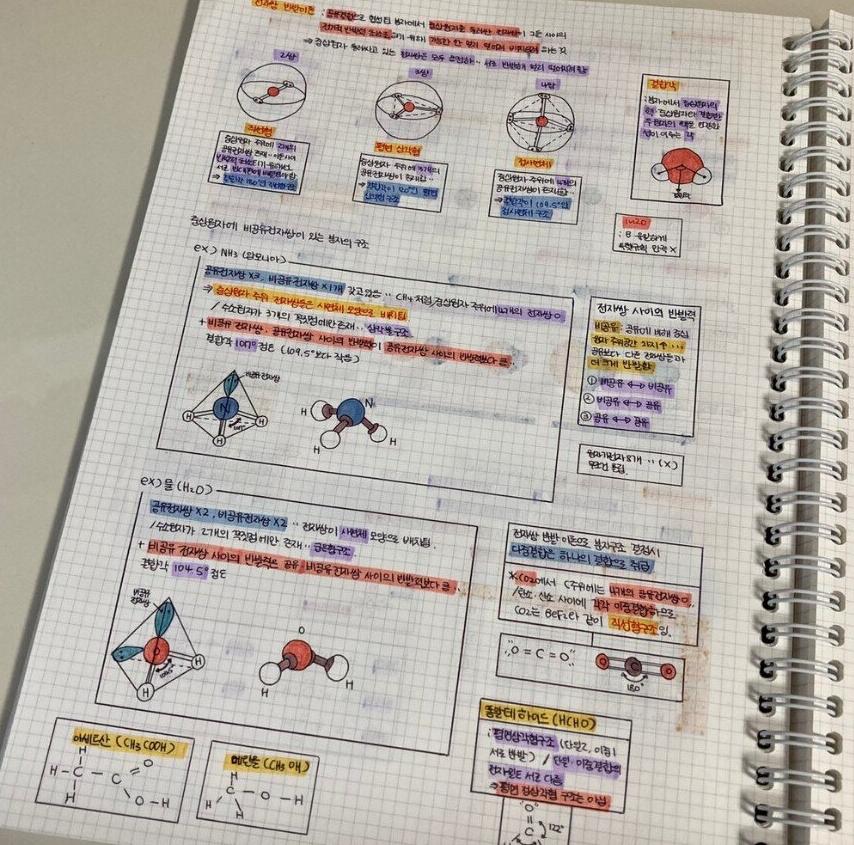 전자쌍 반발이론 : 공유결합으로 형성된 분자에서 중심원자를 둘러싼 전자쌍이 그들 사이의
전기적 반발력 최소로 하기 위해 가능한 한 멀리 떨어져 배치하려 하는 것
⇒ 중심원자 둘러싸고 있는 전자쌍은 모두 음전하 ∴ 서로 반발하여 멀리 떨어지려 함
2쌍
3쌍
4쌍
직선형
중심원자 주위에 2개의
공유전자쌍 존재
⇒ 결합각 180°인 직선형 구조
평면 삼각형
중심원자 주위에 3개의
공유전자쌍이 존재
⇒ 결합각이 120°인 평면
삼각형 구조
정사면체
중심원자 주위에 4개의
공유전자쌍이 존재
⇒ 결합각이 109.5°인
정사면체 구조
결합각
: 분자에서 중심원자의
핵
이루는 각
중심원자에 비공유전자쌍이 있는 분자의 구조
ex) NH3 (암모니아)
공유전자쌍 X3, 비공유전자쌍 X1개 갖고있음 ∵ CH4처럼 중심원자 주위에 4개의 전자쌍 O
⇒ 중심원자 주위 전자쌍들은 사면체 모양으로 배치됨
/ 수소원자가 3개의 꼭짓점에만 존재 ∴ 삼각뿔구조
+ 비공유 전자쌍-공유전자쌍 사이의 반발력이 공유전자쌍 사이의 반발력보다 큼
결합각 107° 정도 (109.5°보다 작음)
비공유전자쌍
N
H
H
H
107°
N
H
H
H
전자쌍 사이의 반발력
비공유 : 공유에 비해 중심
원자 주위공간 차지↑ ∴
공유보다 다른 전자쌍들과
더 크게 반발함
① 비공유 ↔ 비공유
② 비공유 ↔ 공유
③ 공유 ↔ 공유
ex) 물 (H2O)
공유전자쌍 X2, 비공유전자쌍 X2 ∵ 전자쌍이 사면체 모양으로 배치됨
/ 수소원자가 2개의 꼭짓점에만 존재 ∴ 굽은형구조
+ 비공유 전자쌍 사이의 반발력은 공유-비공유전자쌍 사이의 반발력보다 큼
결합각 104.5° 정도
비공유
전자쌍
O
H
H
104.5°
O
H
H
전자쌍 반발 이론으로 분자구조 결정시
다중결합은 하나의 결합으로 취급
※ CO2에서 C주위에는 4개의 공유전자쌍 O
/ 탄소, 산소 사이에 각각 이중결합하므로
CO2는 BeF2와 같이 직선형구조임.
O = C = O
O
C
O
180°
폼알데하이드 (HCHO)
: 평면삼각형구조 (단일2, 이중1
서로 반발) / 단일·이중결합의
전자밀도 서로 다름
⇒ 평면 정삼각형 구조는 아님
O
C
122°
아세트산 (CH3COOH)
H
H - C - C
O
H
O - H
메탄올 (CH3OH)
H
C - O - H
H
H